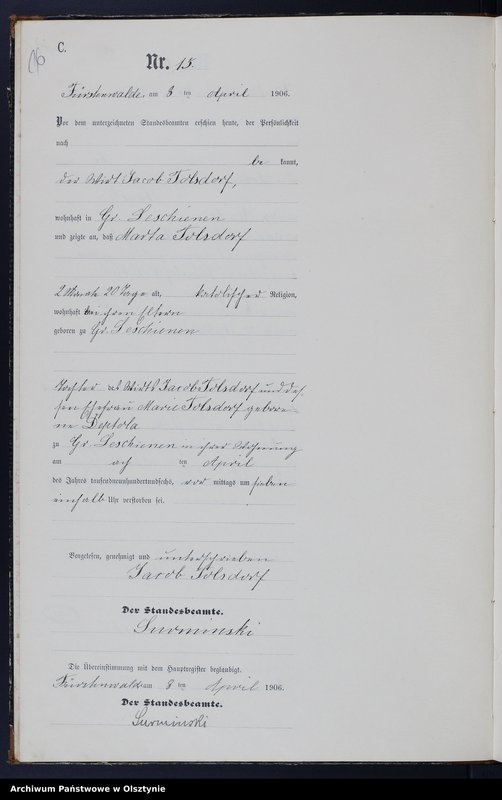 C.
Nr. 15.
Fürstenwalde am 8 ten April 1906.
Vor dem unterzeichneten Standesbeamten erschien heute, der Persönlichkeit
nach
be kannt,
der Wirt Jacob Tolsdorf,
wohnhaft in Gr. Leschienen
und zeigte an, daß Marta Tolsdorf
2 Monate 20 Tage alt, katolischer Religion,
wohnhaft bei ihren Eltern
geboren zu Gr. Leschienen
Tochter des Wirts Jacob Tolsdorf und des-
sen Ehefrau Marie Tolsdorf gebore-
ne Dyptola
zu Gr. Leschienen in ihrer Wohnung
am ten April
des Jahres tausendneunhundertundsechs, vor mittags um sieben
einhalb Uhr verstorben sei.
Vorgelesen, genehmigt und unterschrieben
Jacob Tolsdorf
Der Standesbeamte.
Surminski
Die Übereinstimmung mit dem Hauptregister beglaubigt.
Fürstenwalde am 8 ten April 1906.
Der Standesbeamte.
Surminski
Archiwum Państwowe w Olsztynie